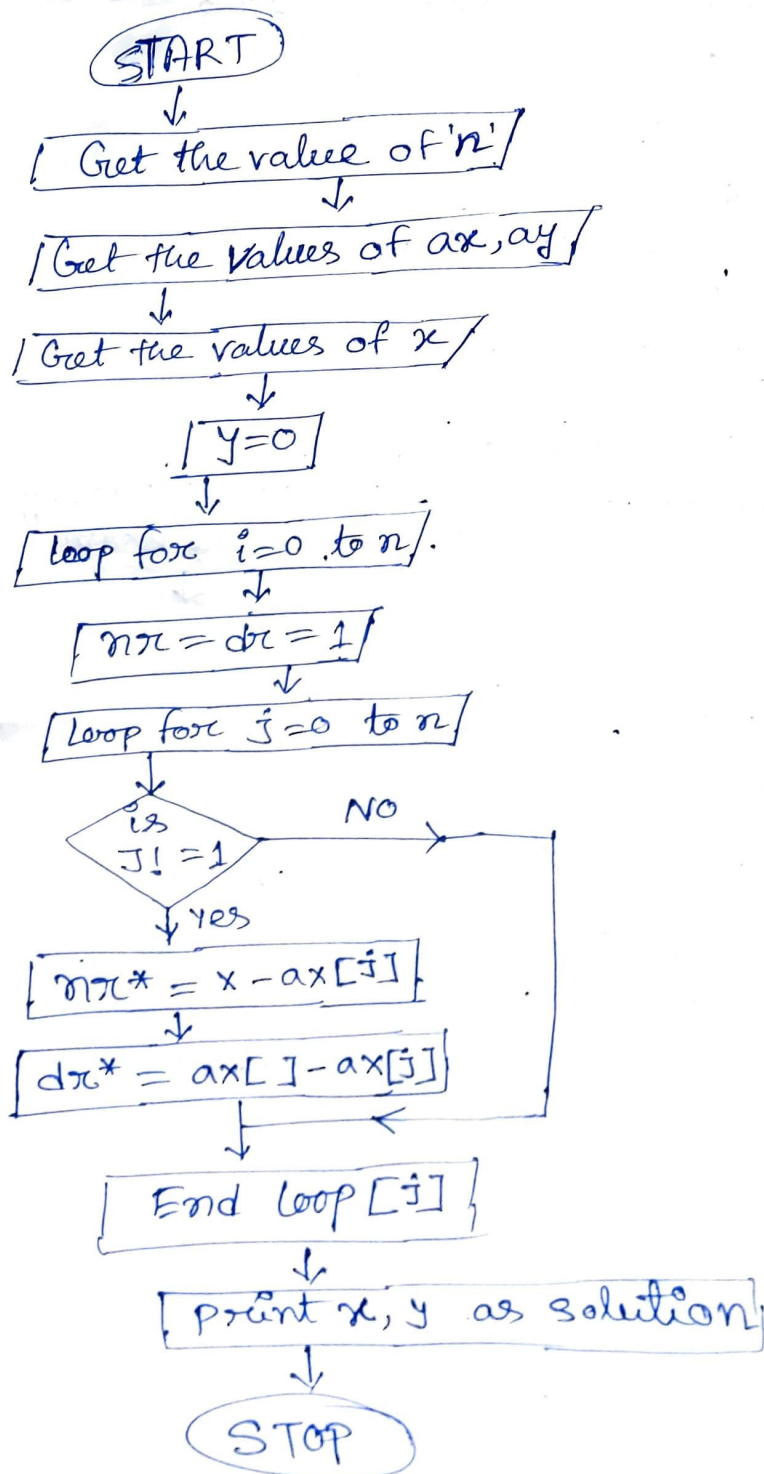 START
Get the value of 'n'
Get the values of ax, ay
Get the values of x
y=0
loop for i=0 to n
nr = dr = 1
Loop for j=0 to n
is
J! = 1
NO
Yes
nr* = x - ax[j]
dr* = ax[ ] - ax[j]
End loop [j]
print x, y as solution
STOP